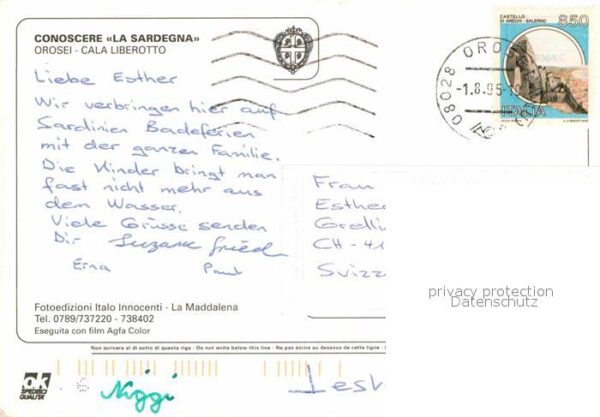 CONOSCERE «LA SARDEGNA»
OROSEI - CALA LIBEROTTO
Liebe Esther
Wir verbringen hier auf
Sardinien Badeferien
mit der ganzen Familie.
Die Kinder bringt man
fast nicht mehr aus
dem Wasser.
Viele Grüsse senden
Dir Suzanne
Erna Paul
Fotoedizioni Italo Innocenti - La Maddalena
Tel. 0789/737220 - 738402
Eseguita con film Agfa Color
Non scrivere al di sotto di questa riga - Do not write below this line - Ne pas écrire au dessous de cette ligne -
ok
SPEDISCI
QUALITÀ
Niggi
CASTELLO
DI ARECHI - SALERNO
850
ITALIA
08028 OROSEI
-1.8.95-
Frau
Esther
CH - 41
Svizze
privacy protection
Datenschutz